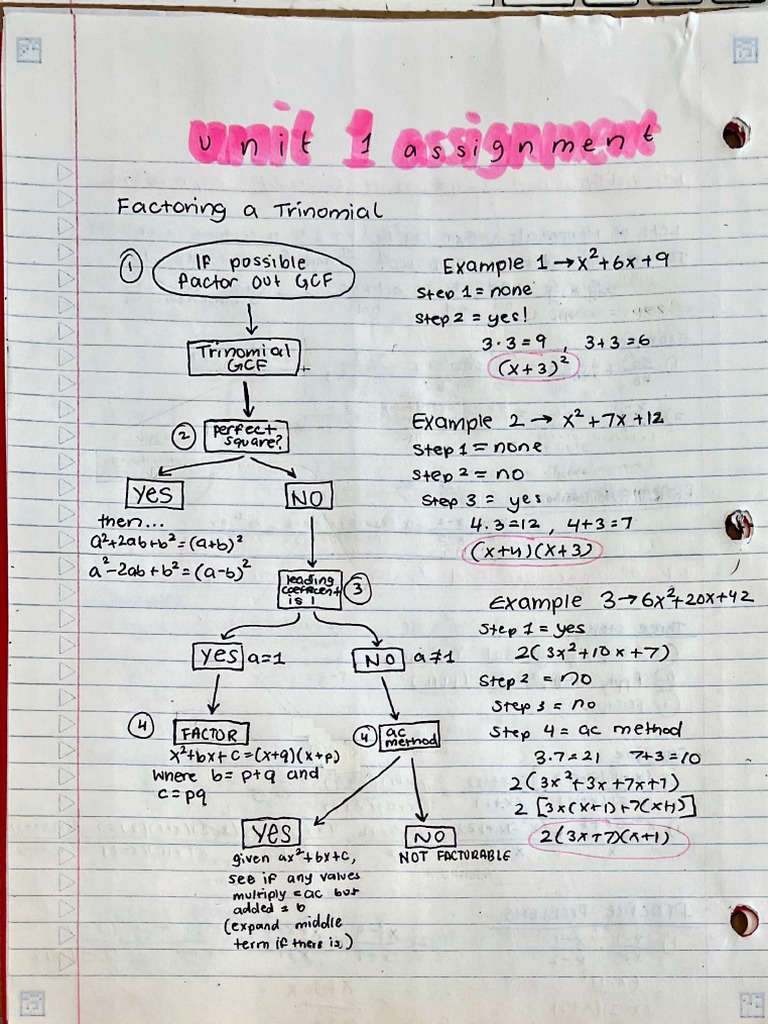 unit 1 assignment
Factoring a Trinomial
① If possible
factor out GCF
Trinomial
GCF
② perfect
square?
YES
NO
then...
a²+2ab+b²=(a+b)²
a²-2ab+b²=(a-b)²
leading
coefficient
is 1
③
YES a=1
NO a≠1
④ FACTOR
x²+bx+c=(x+q)(x+p)
where b=p+q and
c=pq
④ ac
method
YES
given ax²+bx+c,
see if any values
multiply =ac but
added = b
(expand middle
term if there is)
NO
NOT FACTORABLE
Example 1 → x²+6x+9
Step 1 = none
Step 2 = yes!
3·3=9 , 3+3=6
(x+3)²
Example 2 → x²+7x+12
Step 1 = none
Step 2 = no
Step 3 = yes
4·3=12 , 4+3=7
(x+4)(x+3)
Example 3→6x²+20x+42
Step 1 = yes
2(3x²+10x+7)
Step 2 = no
Step 3 = no
Step 4 = ac method
3·7=21 7+3=10
2(3x²+3x+7x+7)
2[3x(x+1)+7(x+1)]
2(3x+7)(x+1)